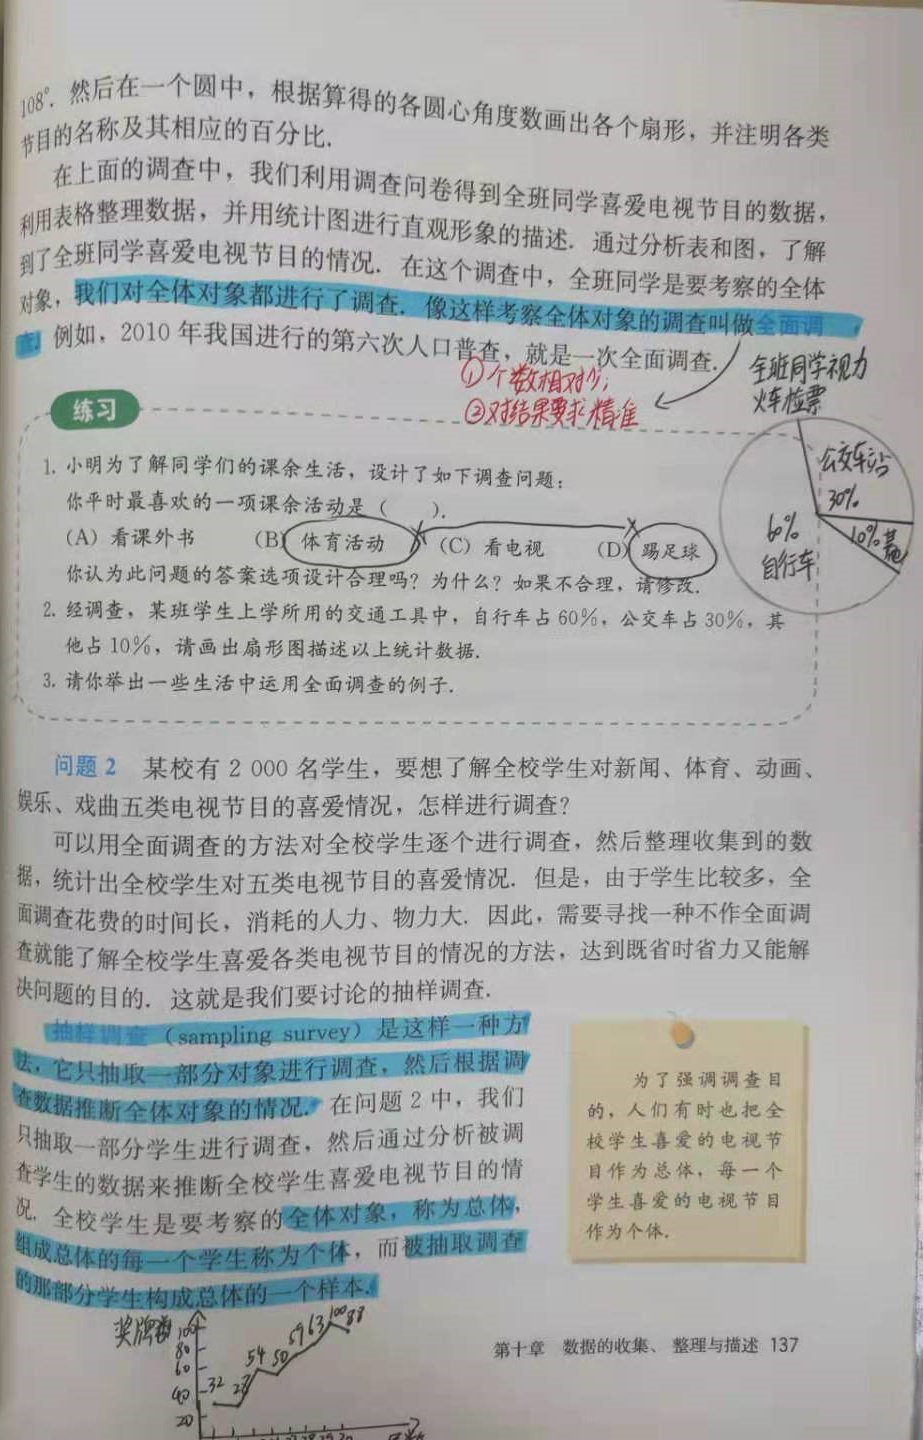 108°. 然后在一个圆中，根据算得的各圆心角度数画出各个扇形，并注明各类
节目的名称及其相应的百分比.
在上面的调查中，我们利用调查问卷得到全班同学喜爱电视节目的数据，
利用表格整理数据，并用统计图进行直观形象的描述. 通过分析表和图，了解
到了全班同学喜爱电视节目的情况. 在这个调查中，全班同学是要考察的全体
对象，我们对全体对象都进行了调查. 像这样考察全体对象的调查叫做全面调
查. 例如，2010 年我国进行的第六次人口普查，就是一次全面调查.
①个数相对少；
②对结果要求精准
全班同学视力
火车检票
练习
1. 小明为了解同学们的课余生活，设计了如下调查问题：
你平时最喜欢的一项课余活动是（  ）.
（A）看课外书 （B）体育活动 （C）看电视 （D）踢足球
你认为此问题的答案选项设计合理吗？为什么？如果不合理，请修改.
2. 经调查，某班学生上学所用的交通工具中，自行车占60%，公交车占30%，其
他占10%，请画出扇形图描述以上统计数据.
3. 请你举出一些生活中运用全面调查的例子.
公交车占
30%
10%其他
60%
自行车
问题 2 某校有 2 000 名学生，要想了解全校学生对新闻、体育、动画、
娱乐、戏曲五类电视节目的喜爱情况，怎样进行调查？
可以用全面调查的方法对全校学生逐个进行调查，然后整理收集到的数
据，统计出全校学生对五类电视节目的喜爱情况. 但是，由于学生比较多，全
面调查花费的时间长，消耗的人力、物力大. 因此，需要寻找一种不作全面调
查就能了解全校学生喜爱各类电视节目的情况的方法，达到既省时省力又能解
决问题的目的. 这就是我们要讨论的抽样调查.
抽样调查（sampling survey）是这样一种方
法，它只抽取一部分对象进行调查，然后根据调
查数据推断全体对象的情况. 在问题 2 中，我们
只抽取一部分学生进行调查，然后通过分析被调
查学生的数据来推断全校学生喜爱电视节目的情
况. 全校学生是要考察的全体对象，称为总体，
组成总体的每一个学生称为个体，而被抽取调查
的那部分学生构成总体的一个样本.
为了强调调查目
的，人们有时也把全
校学生喜爱的电视节
目作为总体，每一个
学生喜爱的电视节目
作为个体.
第十章 数据的收集、整理与描述 137
奖牌数
100
80
60
40
20
32
54
50
59 63 100 88